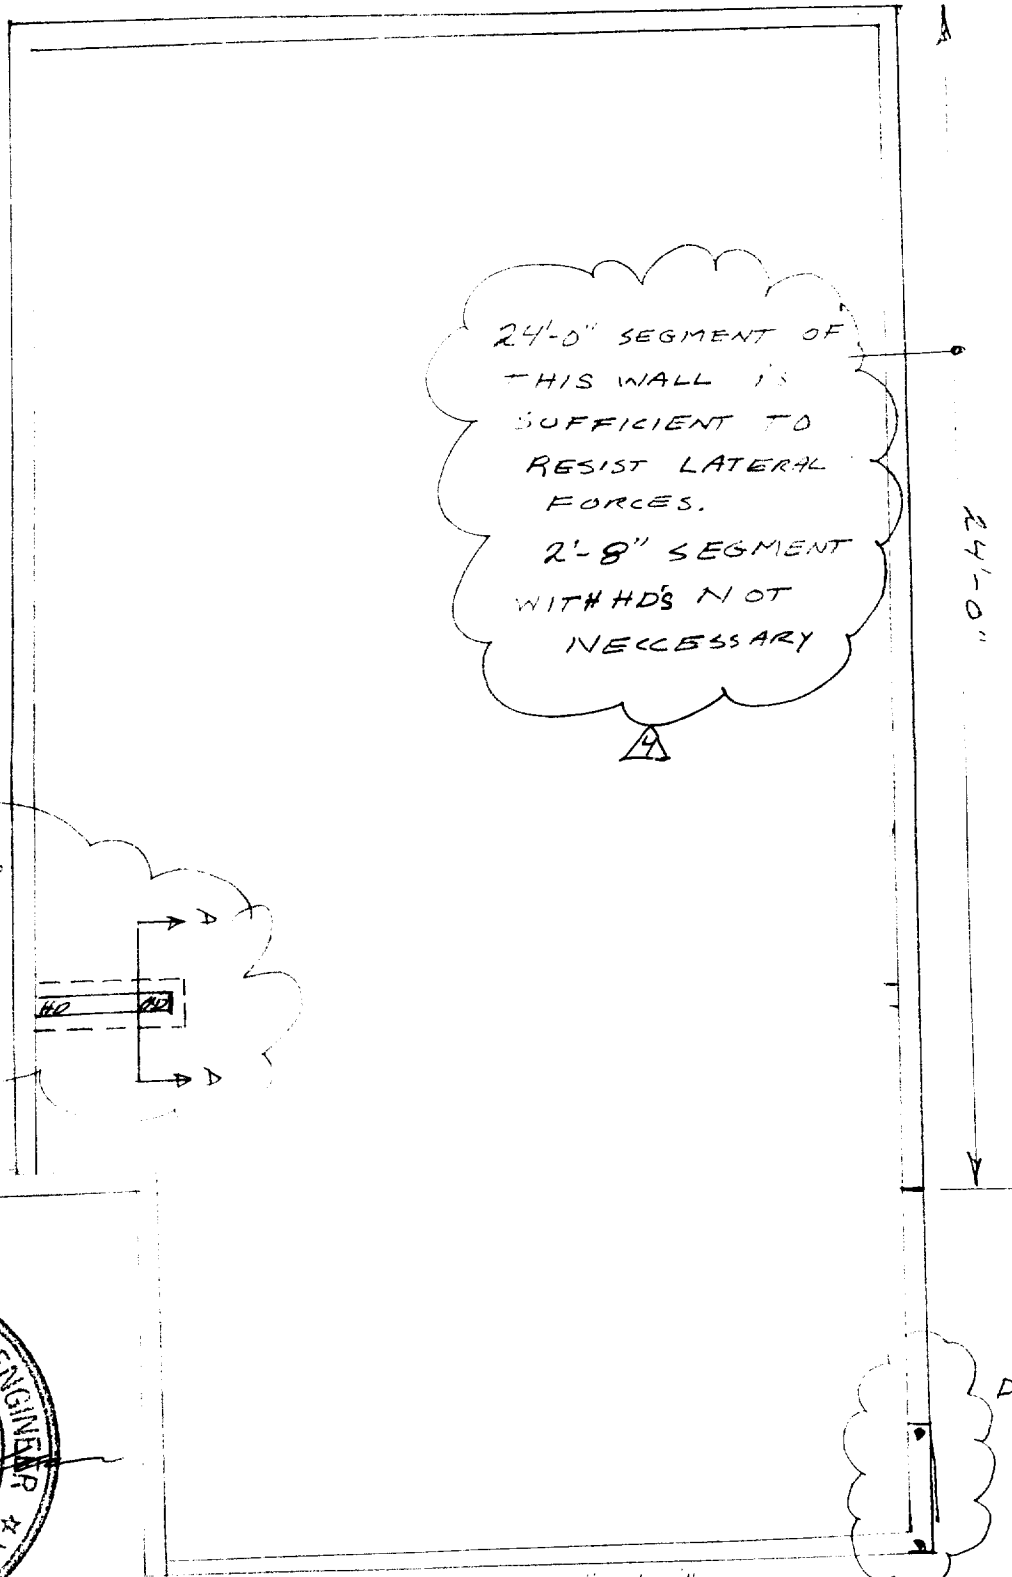 24'-0" SEGMENT OF
THIS WALL IS
SUFFICIENT TO
RESIST LATERAL
FORCES.
2'-8" SEGMENT
WITH HD'S NOT
NECCESSARY
4
24'-0"
D
HD HD
D
D
ENGINEER